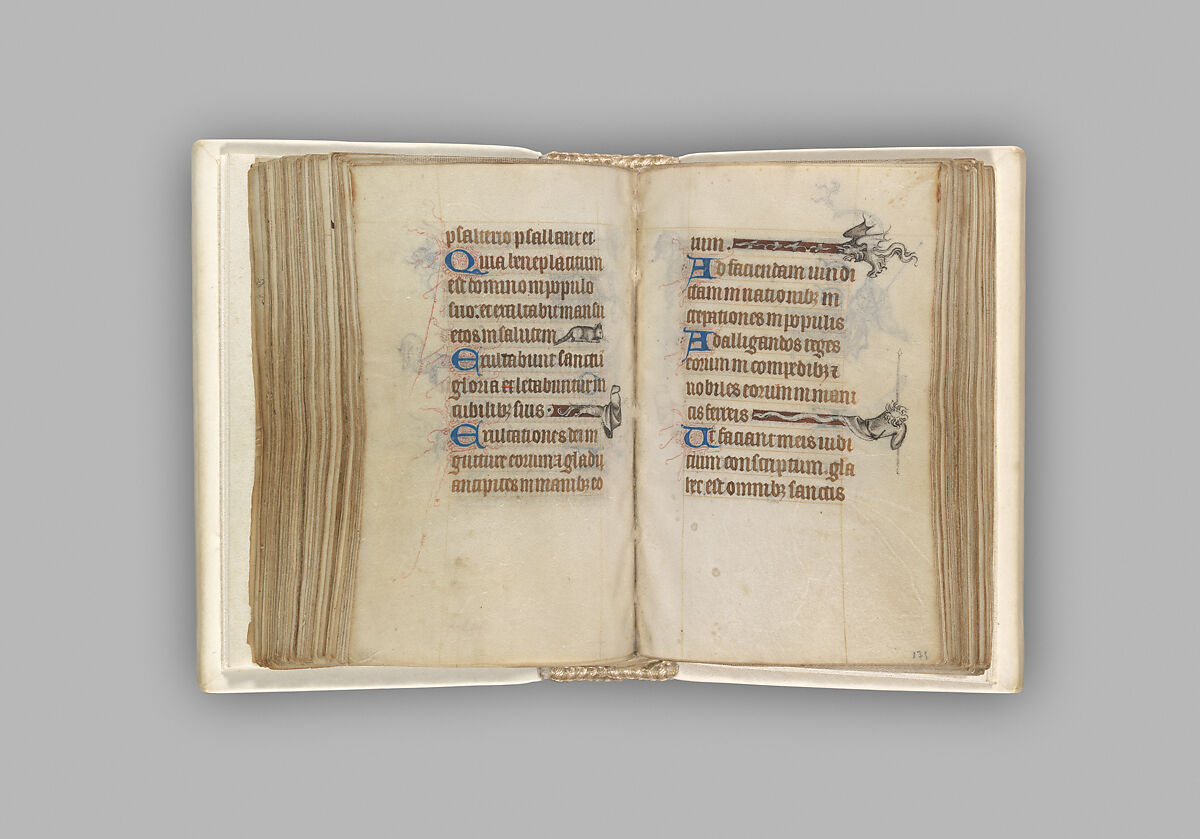 psalterio psallant ei.
Quia beneplacitum
est domino in populo
suo: et exaltabit mansu
etos in salutem
Exultabunt sancti in
gloria et letabuntur in
cubilibꝫ suis.
Exultationes dei in
gutture eorum: ⁊ gladii
ancipites in manibꝫ eo
rum.
Ad faciendam vindi
ctam in nationibꝫ in
crepationes in populis
Ad alligandos reges
eorum in compedibꝫ ⁊
nobiles eorum in mani
cis ferreis
Ut faciant in eis iudi
cium conscriptum. glo
hec est omnibꝫ sanctis
171